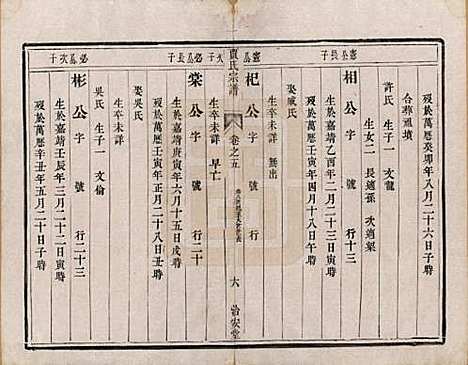 歿於萬曆癸卯年八月二十六日寅時
合葬通墳
許氏 生子一 文龍
生女二 長適孫 次適梁
憲公長子
相公 字 號 行十三
生於嘉靖乙酉年二月二十八日辰時
歿於萬曆壬寅年四月十八日午時
娶臧氏
生卒未詳 無出
憲公次子
杞公 字 號 行
生卒未詳 早亡
賈氏宗譜
卷之五
六
治安堂
棠公 字 號 行二十
生於嘉靖庚寅年六月十五日戌時
歿於萬曆壬寅年正月二十八日丑時
娶吳氏
生卒未詳
彬公 字 號 行二十三
生於嘉靖壬辰年三月二十二日寅時
歿於萬曆辛丑年五月二十日子時
吳氏 生子一 文倫